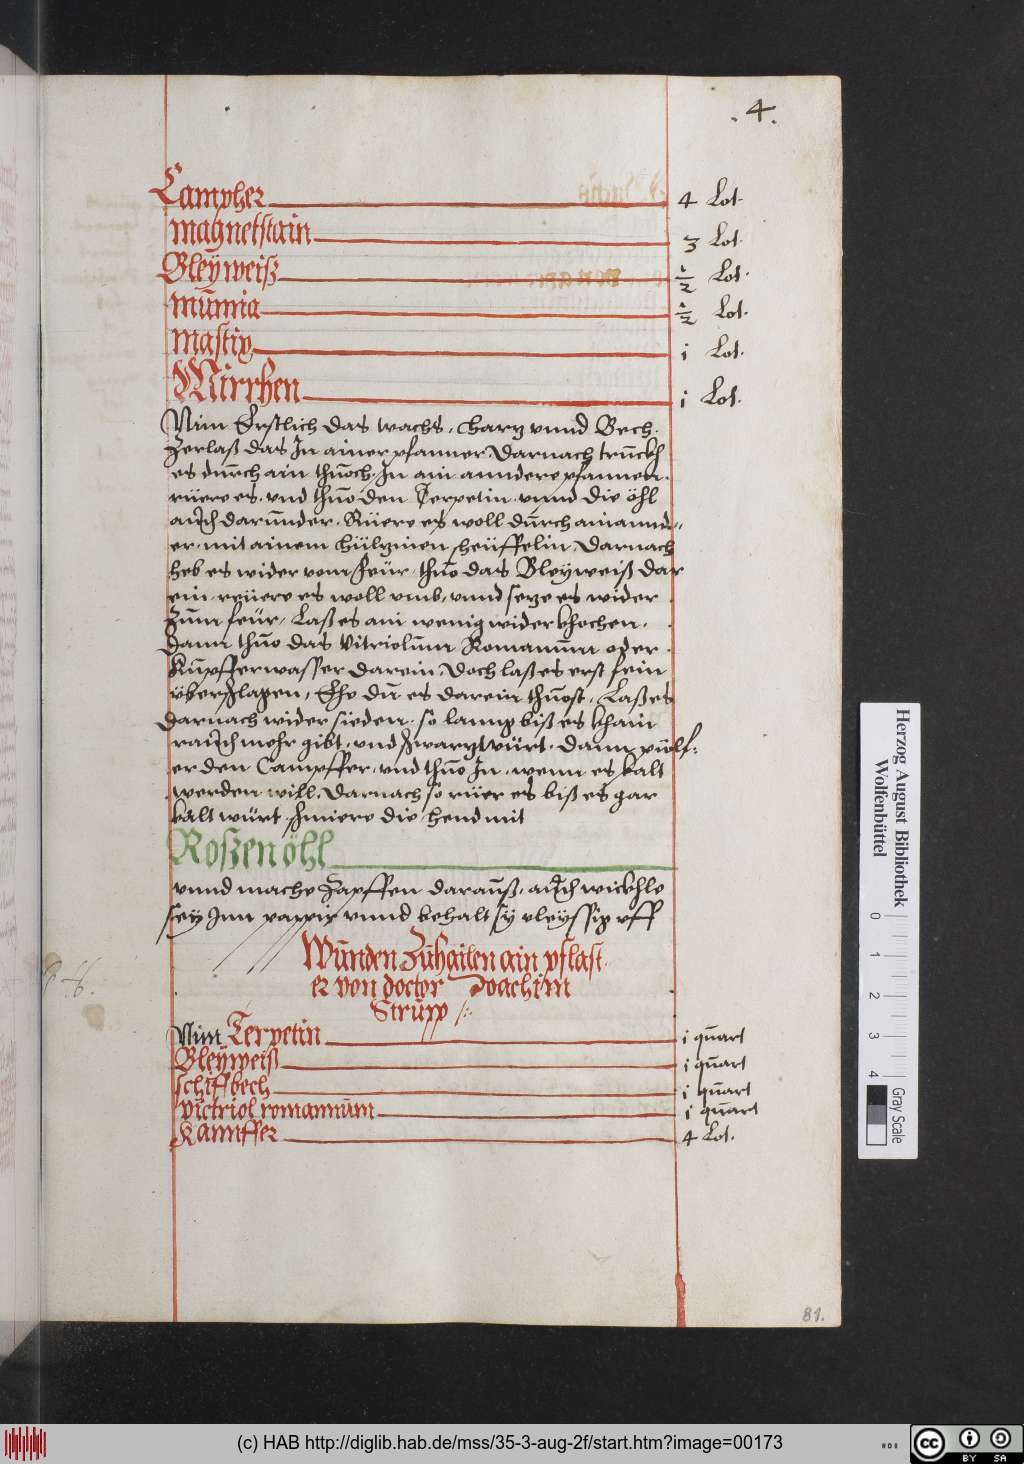 . 4 .
Campher 4 Lot.
magnetstain 3 Lot.
Bleÿweiß ½ Lot.
mūmia ½ Lot.
mastix i Lot.
Mirrhen i Lot.
Nim Erstlich das wachs, hartz unnd Bech.
Zerlaß das In ainer pfannen, Darnach trückh
es dürch ain thuoch. In ain anndere pfannen.
rüere es. und thuo den Terpetin unnd die öhl
auch darunder. Rüere es woll durch ainannd=
er. mit ainem hültzinen scheüffelin, Darnach
heb es wider vom feür, thuo das Bleyweiß dar
ein, rüere es woll umb, unnd setze es wider
Zum feür, Laß es ain wenig wider khochen.
Dann thuo das Vitriolum Romanum oder
Kupfferwasser darein, Doch laß es erst fein
überschlagen, Ehe du es darein thuost, Laß es
darnach wider sieden. so lanng biß es khain
rauch mehr gibt, und schwartz würt. Dann pulf=
er den Campffer, und thuo In, wenn es kalt
werden will, Darnach so rüer es biß es gar
kalt würt. schmiere die Hend mit
Roßen öhl
unnd mache Zapffen daraüß, auch wickhle
sey Inn pappir unnd behalt sy vleyssig uff
Wunden Zuhailen ain pflast
er von doctor Joachim
Strüpp
Nim Terpetin i quart
Bleÿweiß i quart
schiffbech i quart
victriol romannūm i quart
Kamffer 4 Lot.
81.
Herzog August Bibliothek
Wolfenbüttel
0 1 2 3 4
Gray Scale
(c) HAB http://diglib.hab.de/mss/35-3-aug-2f/start.htm?image=00173
cc BY SA